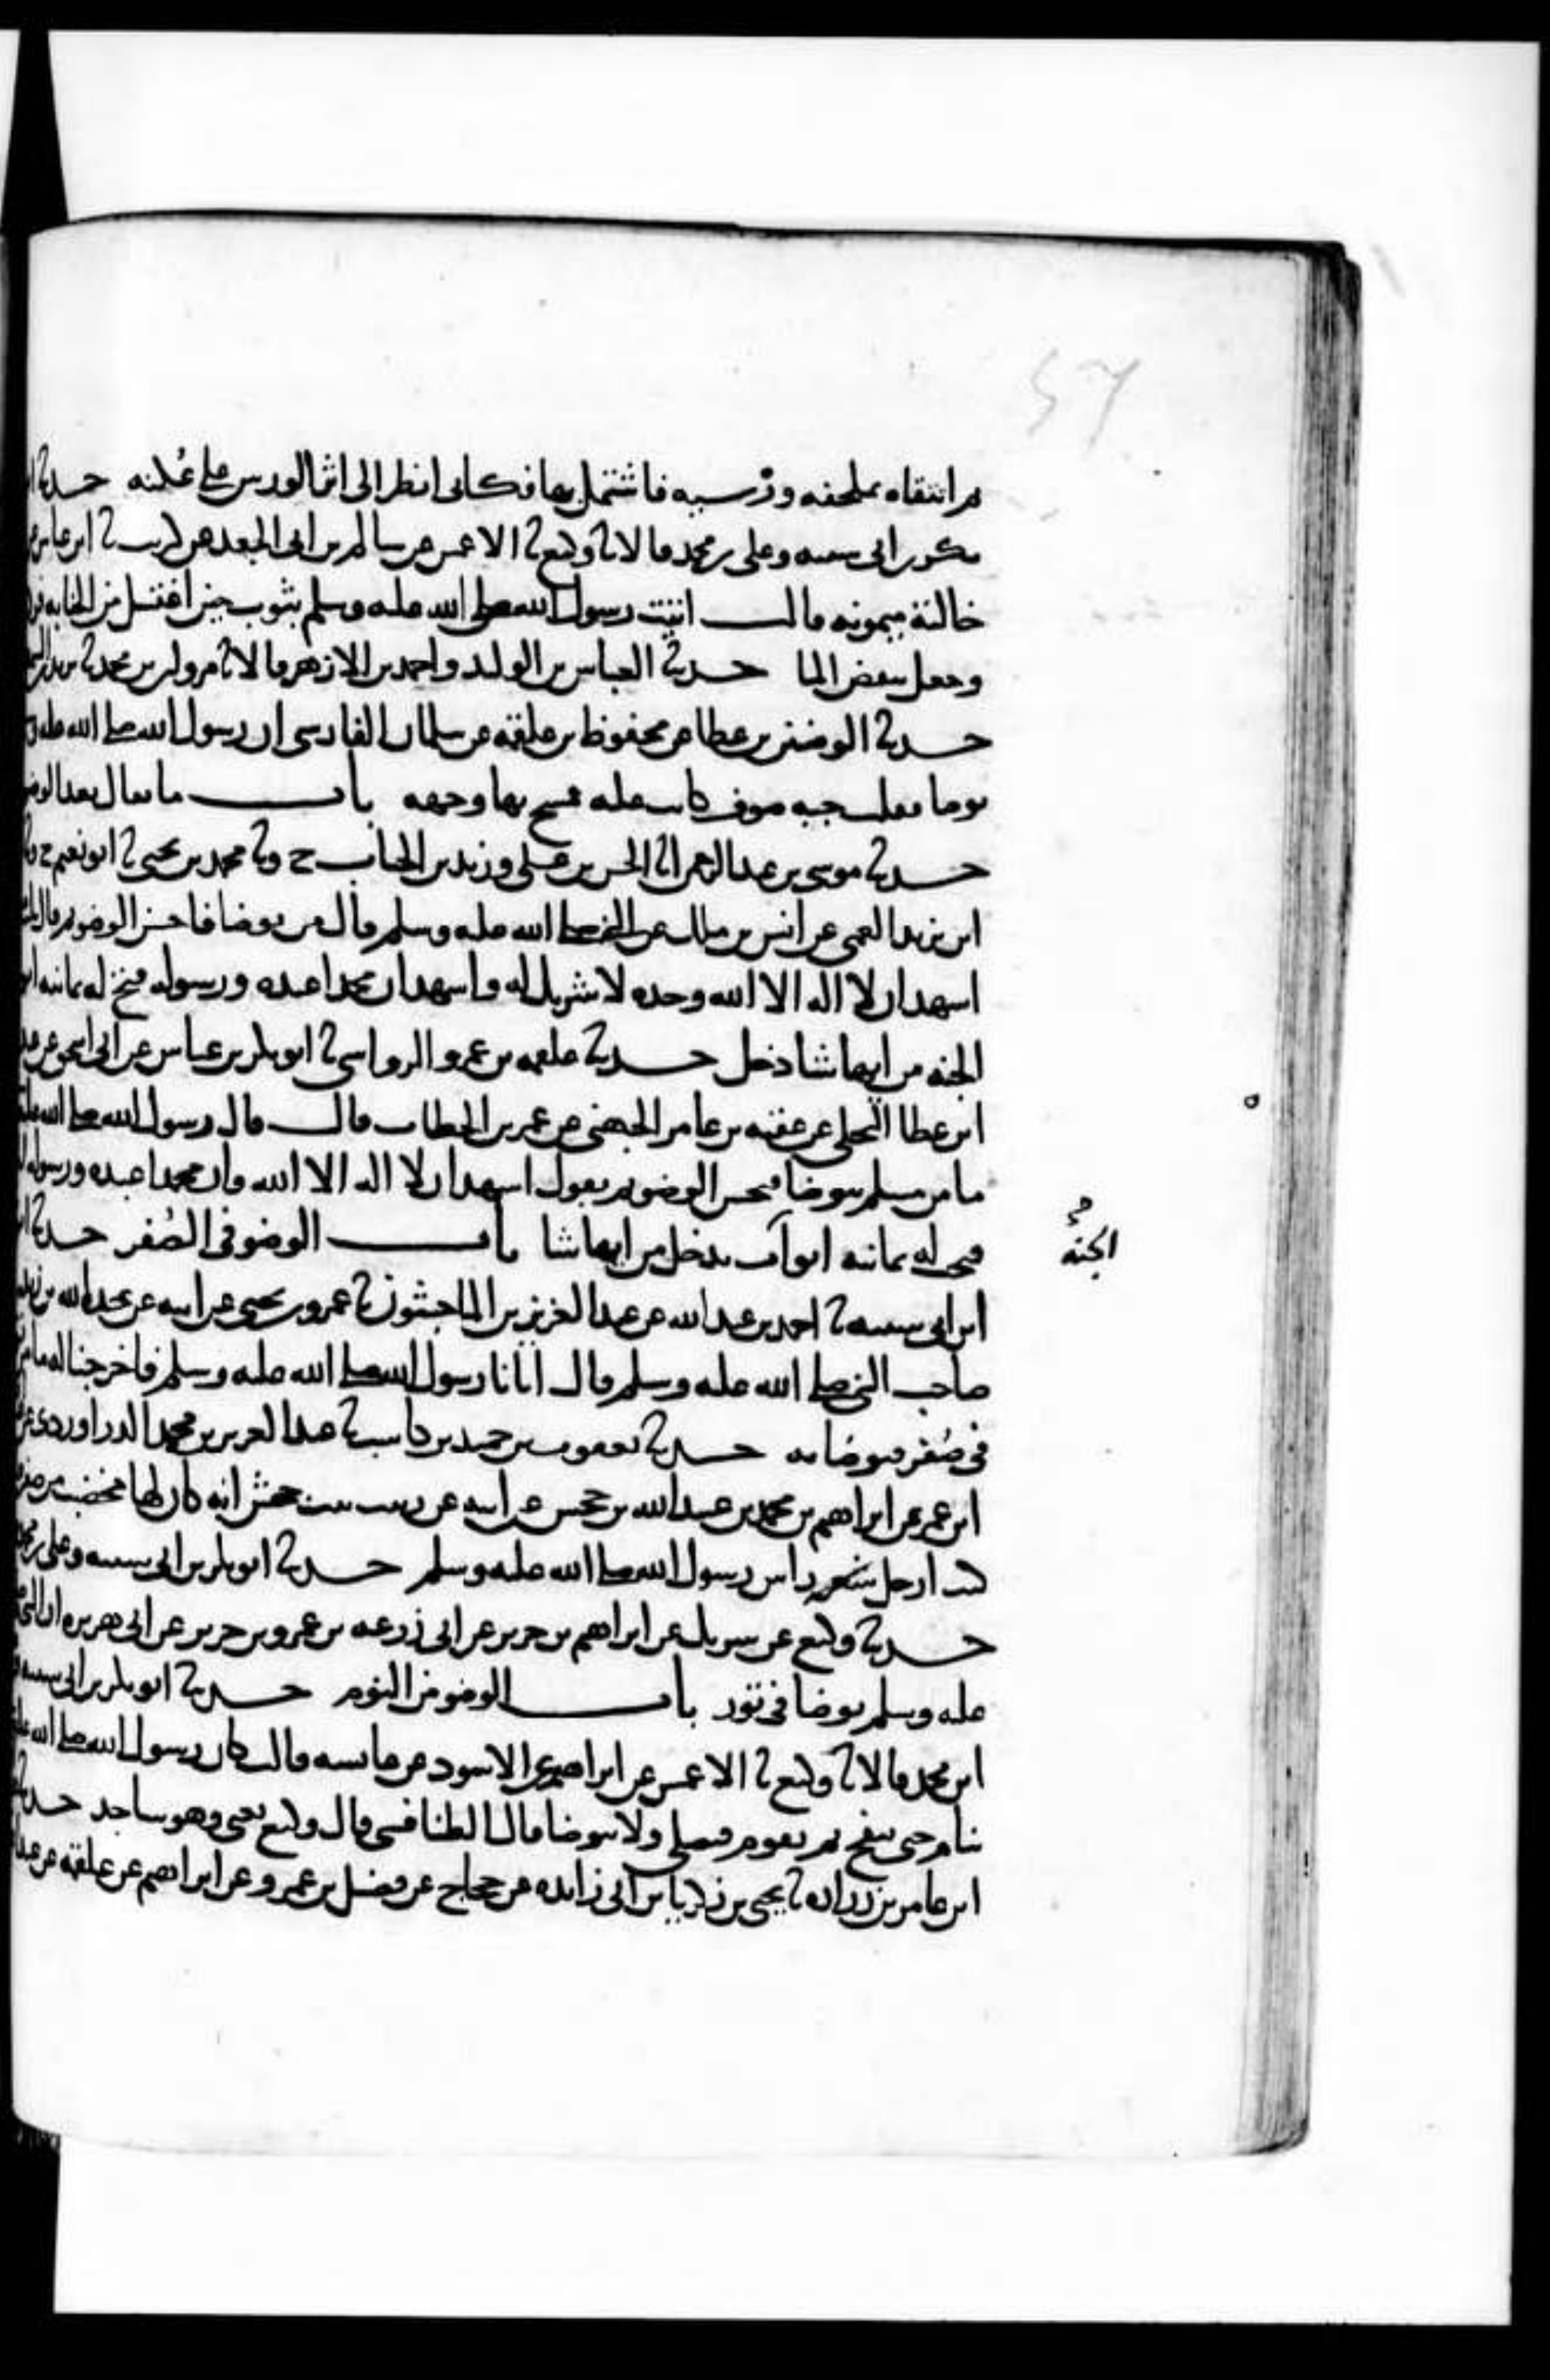 ثم اتيناه بملحفه ورسيه فاشتمل بها فكانى انظر الى اثر الورس على عكنه حدثا
بكر بن ابى شيبه وعلى بن محمد قالا ثا وكيع ثا الاعمش عن سالم بن ابى الجعد عن كريب ثا ابن عباس عن
خالته ميمونه قالت اتيت رسول الله صلى الله عليه وسلم بثوب حين اغتسل من الجنابه فرد
وجعل ينفض الما حدثا العباس بن الوليد واحمد بن الازهر قالا ثا مروان بن محمد ثا يزيد بن السمط
حدثا الوضين بن عطا عن محفوظ بن علقمه عن سلمان الفارسى ان رسول الله صلى الله عليه
توضا فقلب جبه صوف كانت عليه فمسح بها وجهه باب ما يقال بعد الوضو
حدثا موسى بن عبد الرحمن ثا الحسين بن على وزيد بن الحباب ح وثا محمد بن يحيى ثا ابو نعيم
ابن زيد العمى عن انس بن ملك عن النبى صلى الله عليه وسلم قال من توضا فاحسن الوضو ثم قال ثلث
اشهد ان لا اله الا الله وحده لا شريك له واشهد ان محمدا عبده ورسوله فتح له ثمانيه
الجنه من ايها شا دخل حدثا علقمه بن عمرو الرواسى ثا ابو بكر بن عياش عن ابى اسحق عن عبد
ابن عطا البجلى عن عقبه بن عامر الجهنى عن عمر بن الخطاب قال قال رسول الله صلى الله عليه
ما من مسلم يتوضا فيحسن الوضو ثم يقول اشهد ان لا اله الا الله وان محمدا عبده ورسوله
فتحت له ثمانيه ابواب يدخل من ايها شا باب الوضو فى الصفر حدثا
الجنه
ابن ابى شيبه ثا احمد بن عبد الله عن عبد العزيز بن الماجشون ثا عمرو بن يحيى عن ابيه عن عبد الله بن زيد
صاحب النبى صلى الله عليه وسلم قال اتانا رسول الله صلى الله عليه وسلم فاخرجنا له ما
فى صفر فتوضا به حدثا يعقوب بن حميد بن كاسب ثا عبد العزيز بن محمد الدراوردى عن
ابن عمر عن ابراهيم بن محمد بن عبد الله بن جحش عن ابيه عن زينب بنت جحش انه كان لها مخضب من صفر
كنت ارجل شعر راس رسول الله صلى الله عليه وسلم حدثا ابو بكر بن ابى شيبه وعلى بن محمد
حدثا وكيع عن شريك عن ابراهيم بن جرير عن ابى زرعه بن عمرو بن جرير عن ابى هريره ان النبى
عليه وسلم توضا فى تور باب الوضو من النوم حدثا ابو بكر بن ابى شيبه
ابن محمد قالا ثا وكيع ثا الاعمش عن ابراهيم عن الاسود عن عائشه قالت كان رسول الله صلى الله عليه
ينام حتى ينفخ ثم يقوم فيصلى ولا يتوضا قال الطنافسى قال وكيع يعنى وهو ساجد حدثا
ابن عامر بن زراره ثا يحيى بن زكريا بن ابى زائده عن حجاج عن فضيل بن عمرو عن ابراهيم عن علقمه عن عبد